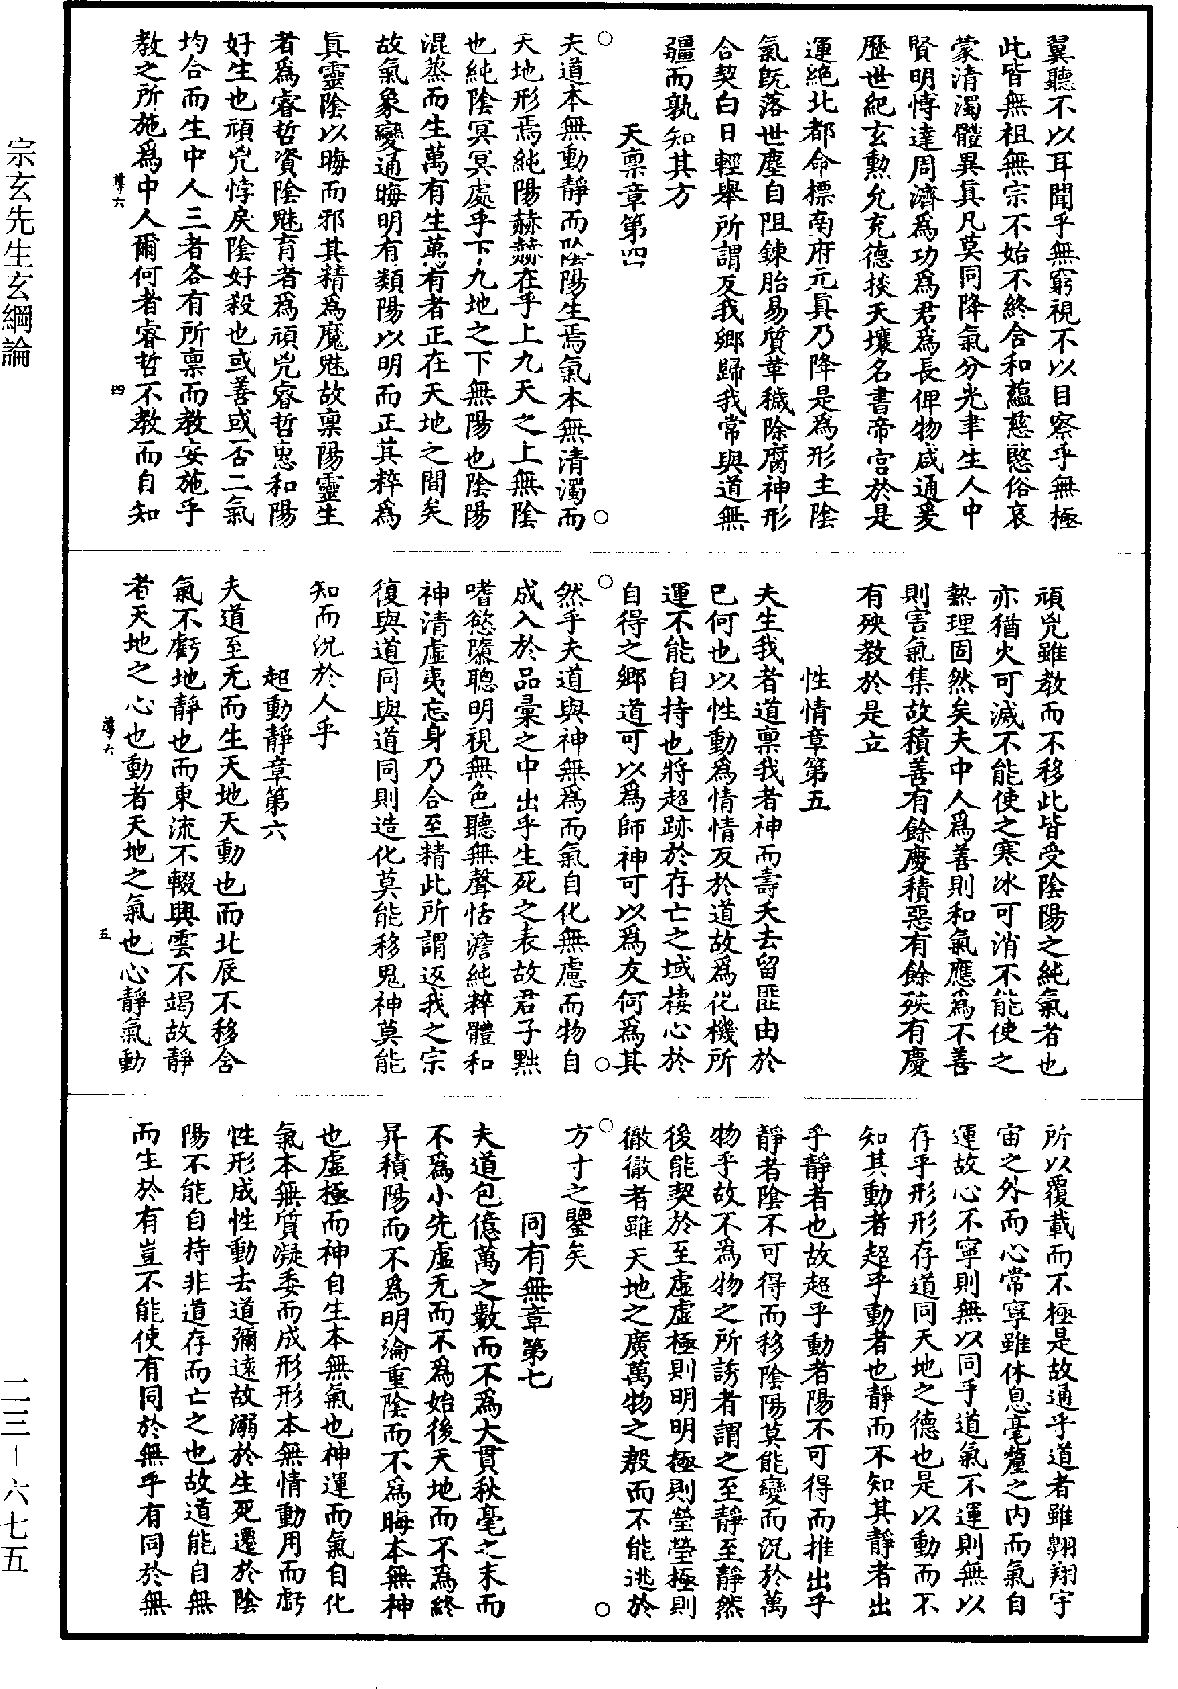 宗玄先生玄綱論
二三－六七五
翼聽不以耳聞乎無窮視不以目察乎無極
此皆無祖無宗不始不終含和蘊慈愍俗哀
蒙清濁體異真凡莫同降氣分光聿生人中
賢明博達周濟為功為君為長俾物咸通爰
歷世紀玄勲允充德掞天壤名書帝宫於是
運絶北都命標南府元真乃降是為形主陰
氣既落世塵自阻鍊胎易質革穢除腐神形
合契白日輕舉所謂反我鄉歸我常與道無
疆而孰知其方
天禀章第四
夫道本無動靜而陰陽生焉氣本無清濁而
天地形焉純陽赫赫在乎上九天之上無陰
也純陰冥冥處乎下九地之下無陽也陰陽
混蒸而生萬有生萬有者正在天地之間矣
故氣象變通晦明有類陽以明而正其粹為
真靈陰以晦而邪其精為魔魅故禀陽靈生
者為睿哲資陰魅育者為頑兇睿哲惠和陽
好生也頑兇悖戾陰好殺也或善或否二氣
均合而生中人三者各有所禀而教安施乎
教之所施為中人爾何者睿哲不教而自知
薄六
四
頑兇雖教而不移此皆受陰陽之純氣者也
亦猶火可滅不能使之寒冰可消不能使之
熱理固然矣夫中人為善則和氣應為不善
則害氣集故積善有餘慶積惡有餘殃有慶
有殃教於是立
性情章第五
夫生我者道禀我者神而壽夭去留匪由於
已何也以性動為情情反於道故為化機所
運不能自持也將超跡於存亡之域棲心於
自得之鄉道可以為師神可以為友何為其
然乎夫道與神無為而氣自化無慮而物自
成入於品彙之中出乎生死之表故君子黜
嗜慾隳聰明視無色聽無聲恬澹純粹體和
神清虛夷忘身乃合至精此所謂返我之宗
復與道同與道同則造化莫能移鬼神莫能
知而況於人乎
超動靜章第六
夫道至无而生天地天動也而北辰不移含
氣不虧地靜也而東流不輟興雲不竭故靜
者天地之心也動者天地之氣也心靜氣動
薄六
五
所以覆載而不極是故通乎道者雖翺翔宇
宙之外而心常寧雖休息毫釐之内而氣自
運故心不寧則無以同乎道氣不運則無以
存乎形形存道同天地之德也是以動而不
知其動者超乎動者也靜而不知其靜者出
乎靜者也故超乎動者陽不可得而推出乎
靜者陰不可得而移陰陽莫能變而況於萬
物乎故不為物之所誘者謂之至靜至靜然
後能契於至虛虛極則明明極則瑩瑩極則
徹徹者雖天地之廣萬物之殷而不能逃於
方寸之鑒矣
同有無章第七
夫道包億萬之數而不為大貫秋毫之末而
不為小先虛无而不為始後天地而不為終
昇積陽而不為明淪重陰而不為晦本無神
也虛極而神自生本無氣也神運而氣自化
氣本無質凝委而成形形本無情動用而虧
性形成性動去道彌遠故溺於生死遷於陰
陽不能自持非道存而亡之也故道能自無
而生於有豈不能使有同於無乎有同於無